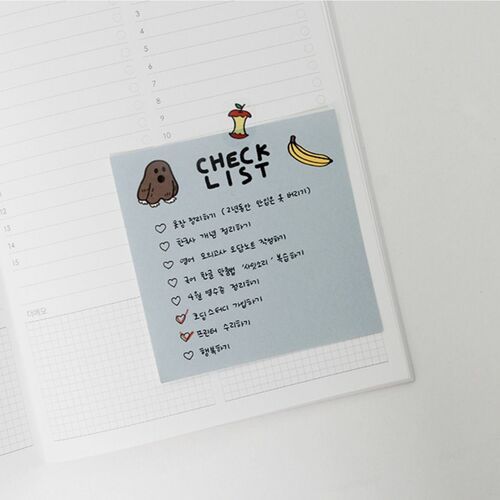 3
4
5
6
7
8
9
10
11
12
13
14
15
CHECK
LIST
옷장 정리하기 (2년동안 안입은 옷 버리기)
한국사 개념 정리하기
영어 모의고사 오답노트 작성하기
국어 한글 맞춤법 '사잇소리' 복습하기
4월 영수증 정리하기
코딩스터디 가입하기
프린터 수리하기
행복하기
데메모